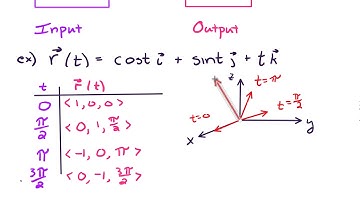 Input Output
ex) r⃗(t) = cost i⃗ + sint j⃗ + t k⃗
t r⃗(t)
0 <1, 0, 0>
π/2 <0, 1, π/2>
π <-1, 0, π>
3π/2 <0, -1, 3π/2>
z t=π
t=0 t=π/2
x y